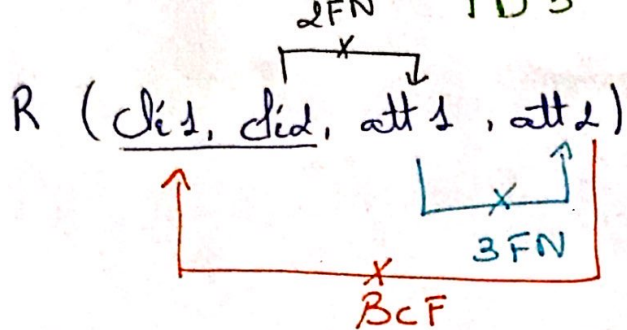 2FN TD 3
R ( clé1, clé2, att 1 , att 2 )
3FN
BCF